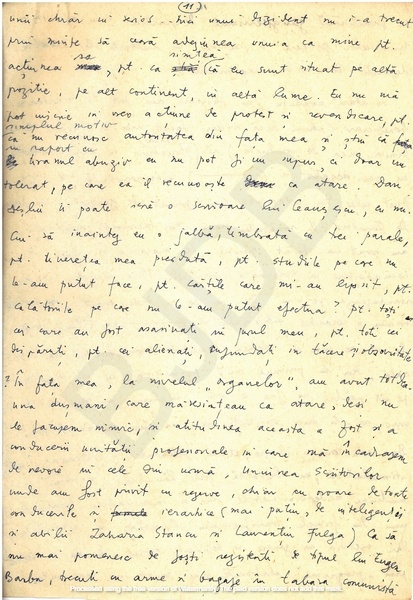 (11)
unii chiar in serios. Nici unui dizident nu i-a trecut
prin minte să ceară adeziunea unuia ca mine pt.
acțiunea sa, pt. că simțeă (că eu sunt situat pe altă
poziție, pe alt continent, in altă lume. Eu nu mă
pot înscrie in vreo acțiune de protest și revendicare, pt.
simplul motiv
că nu recunosc autoritatea din fața mea și știu că
in raport cu
tiranul abuziv eu nu pot fi un supus ci doar un
tolerat, pe care ea il recunoaște ca atare. Dan
Deșliu ii poate scrie o scrisoare lui Ceaușescu, eu nu.
Cum să inaintez eu o jalbă, timbrată cu trei parale,
pt. tinerețea mea pierdută, pt. studiile pe care nu
le-am putut face, pt. cărțile care mi-au lipsit, pt.
călătoriile pe care nu le-am putut efectua? pt. toți
cei care au fost asasinați in jurul meu, pt. toți cei
dispăruți, pt. cei alienați, in tăcere și obscuritate
? In fața mea, la nivelul „organelor", am avut totdea-
una dușmani, care mă ca atare, deși nu
le făcusem nimic, și atitudinea aceasta a fost și a
conducerii unității profesionale in care mă incadrasem
de nevoie in cele din urmă, Uniunea Scriitorilor
unde am fost privit cu rezerve, chiar cu oroare de toate
conducerile și ierarhice (mai puțin, de inteligenții
și abilii Zaharia Stancu și Laurențiu Fulga) ca să
nu mai pomenesc de foști legionari de tipul lui Eugen
Barbu, trecuți cu arme și bagaje in tabăra comunistă